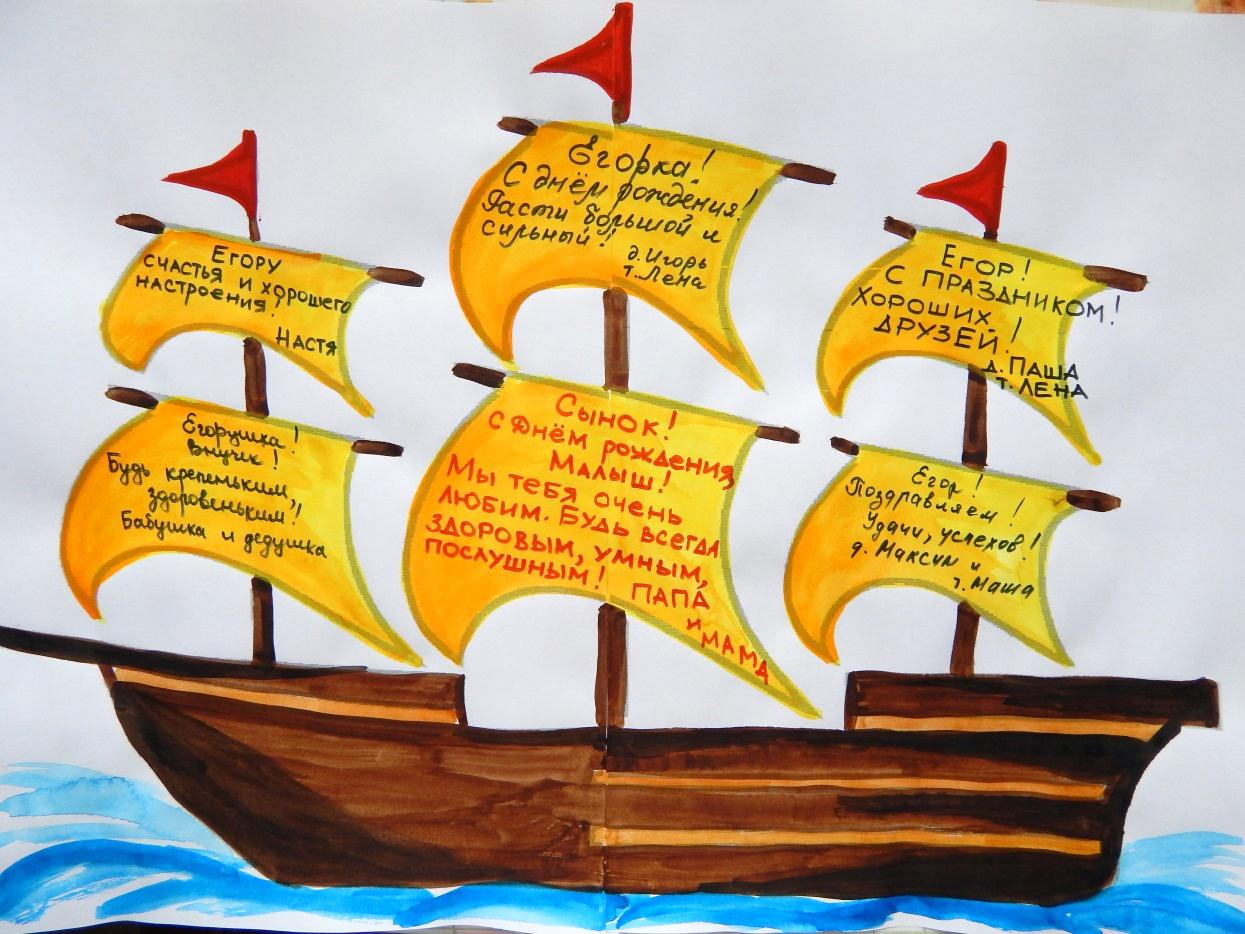 Егору
счастья и хорошего
настроения!
Настя
Егорка!
С днём рождения!
Расти большой и
сильный!
д.Игорь
т.Лена
Егор!
С праздником!
Хороших
друзей!
д.Паша
т.Лена
Егорушка!
Внучек!
Будь крепеньким,
здоровеньким!
Бабушка и дедушка
Сынок!
С Днём рождения,
Малыш!
Мы тебя очень
любим. Будь всегда
здоровым, умным,
послушным!
Папа
и мама
Егор!
Поздравляем!
Удачи, успехов!
д. Максим и
т. Маша